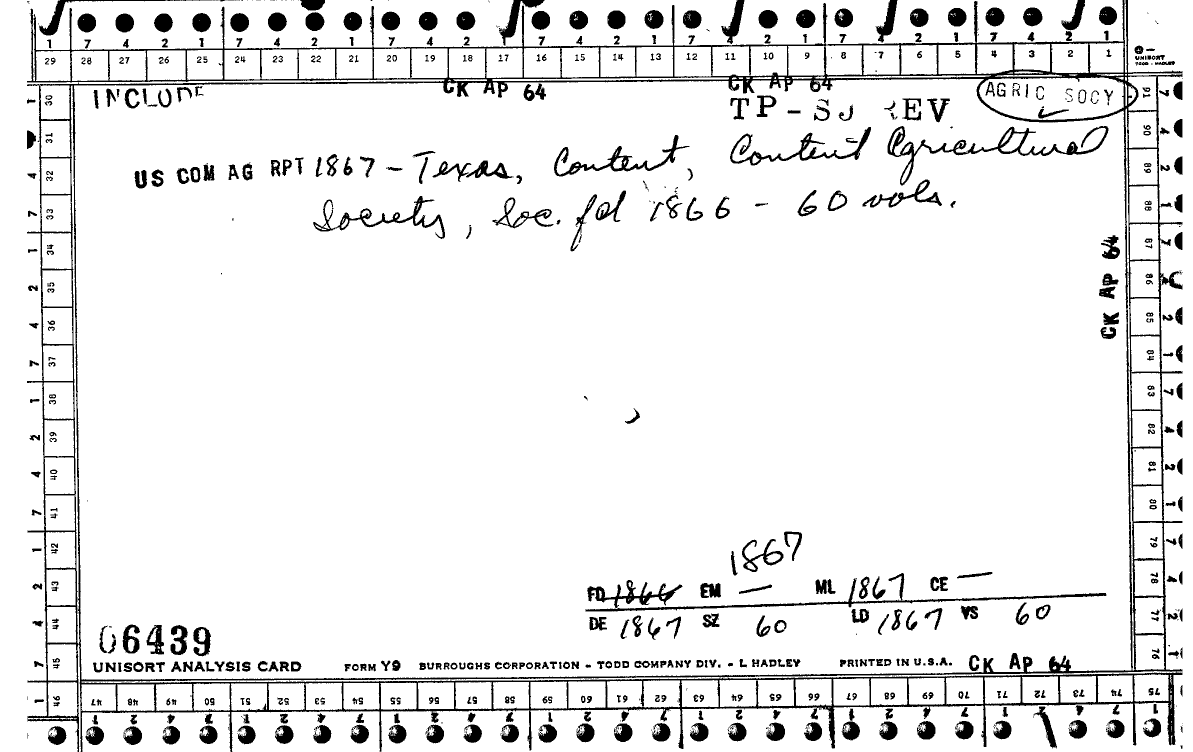 7 4 2 1 7 4 2 1 7 4 2 1 7 4 2 1 7 4 2 1 7 4 2 1 7 4 2 1
29 28 27 26 25 24 23 22 21 20 19 18 17 16 15 14 13 12 11 10 9 8 7 6 5 4 3 2 1
UNISORT
TODD - HADLEY
INCLUDE CK AP 64 CK AP 64
AGRIC SOCY
TP-SJ REV
US COM AG RPT 1867 - Texas, Content, Content Agricultural
Society, Soc. fd 1866 - 60 vols.
CK AP 64
1867
FD 1866 EM — ML 1867 CE —
DE 1867 SZ 60 LD 1867 VS 60
06439
UNISORT ANALYSIS CARD FORM Y9 BURROUGHS CORPORATION - TODD COMPANY DIV. - L HADLEY PRINTED IN U.S.A. CK AP 64
30 31 32 33 34 35 36 37 38 39 40 41 42 43 44 45 46
47 48 49 50 51 52 53 54 55 56 57 58 59 60 61 62 63 64 65 66 67 68 69 70 71 72 73 74 75
91 90 89 88 87 86 85 84 83 82 81 80 79 78 77 76